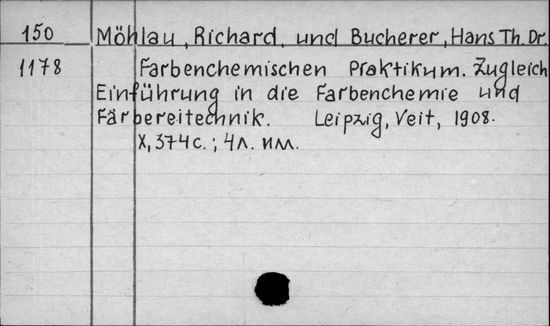 150 Möhlau, Richard, und Bucherer, Hans Th. Dr.
1178 Farbenchemischen Praktikum. Zugleich
Einführung in die Farbenchemie und
Färbereitechnik. Leipzig, Veit, 1908.
X, 374 с.; 4 л. илл.